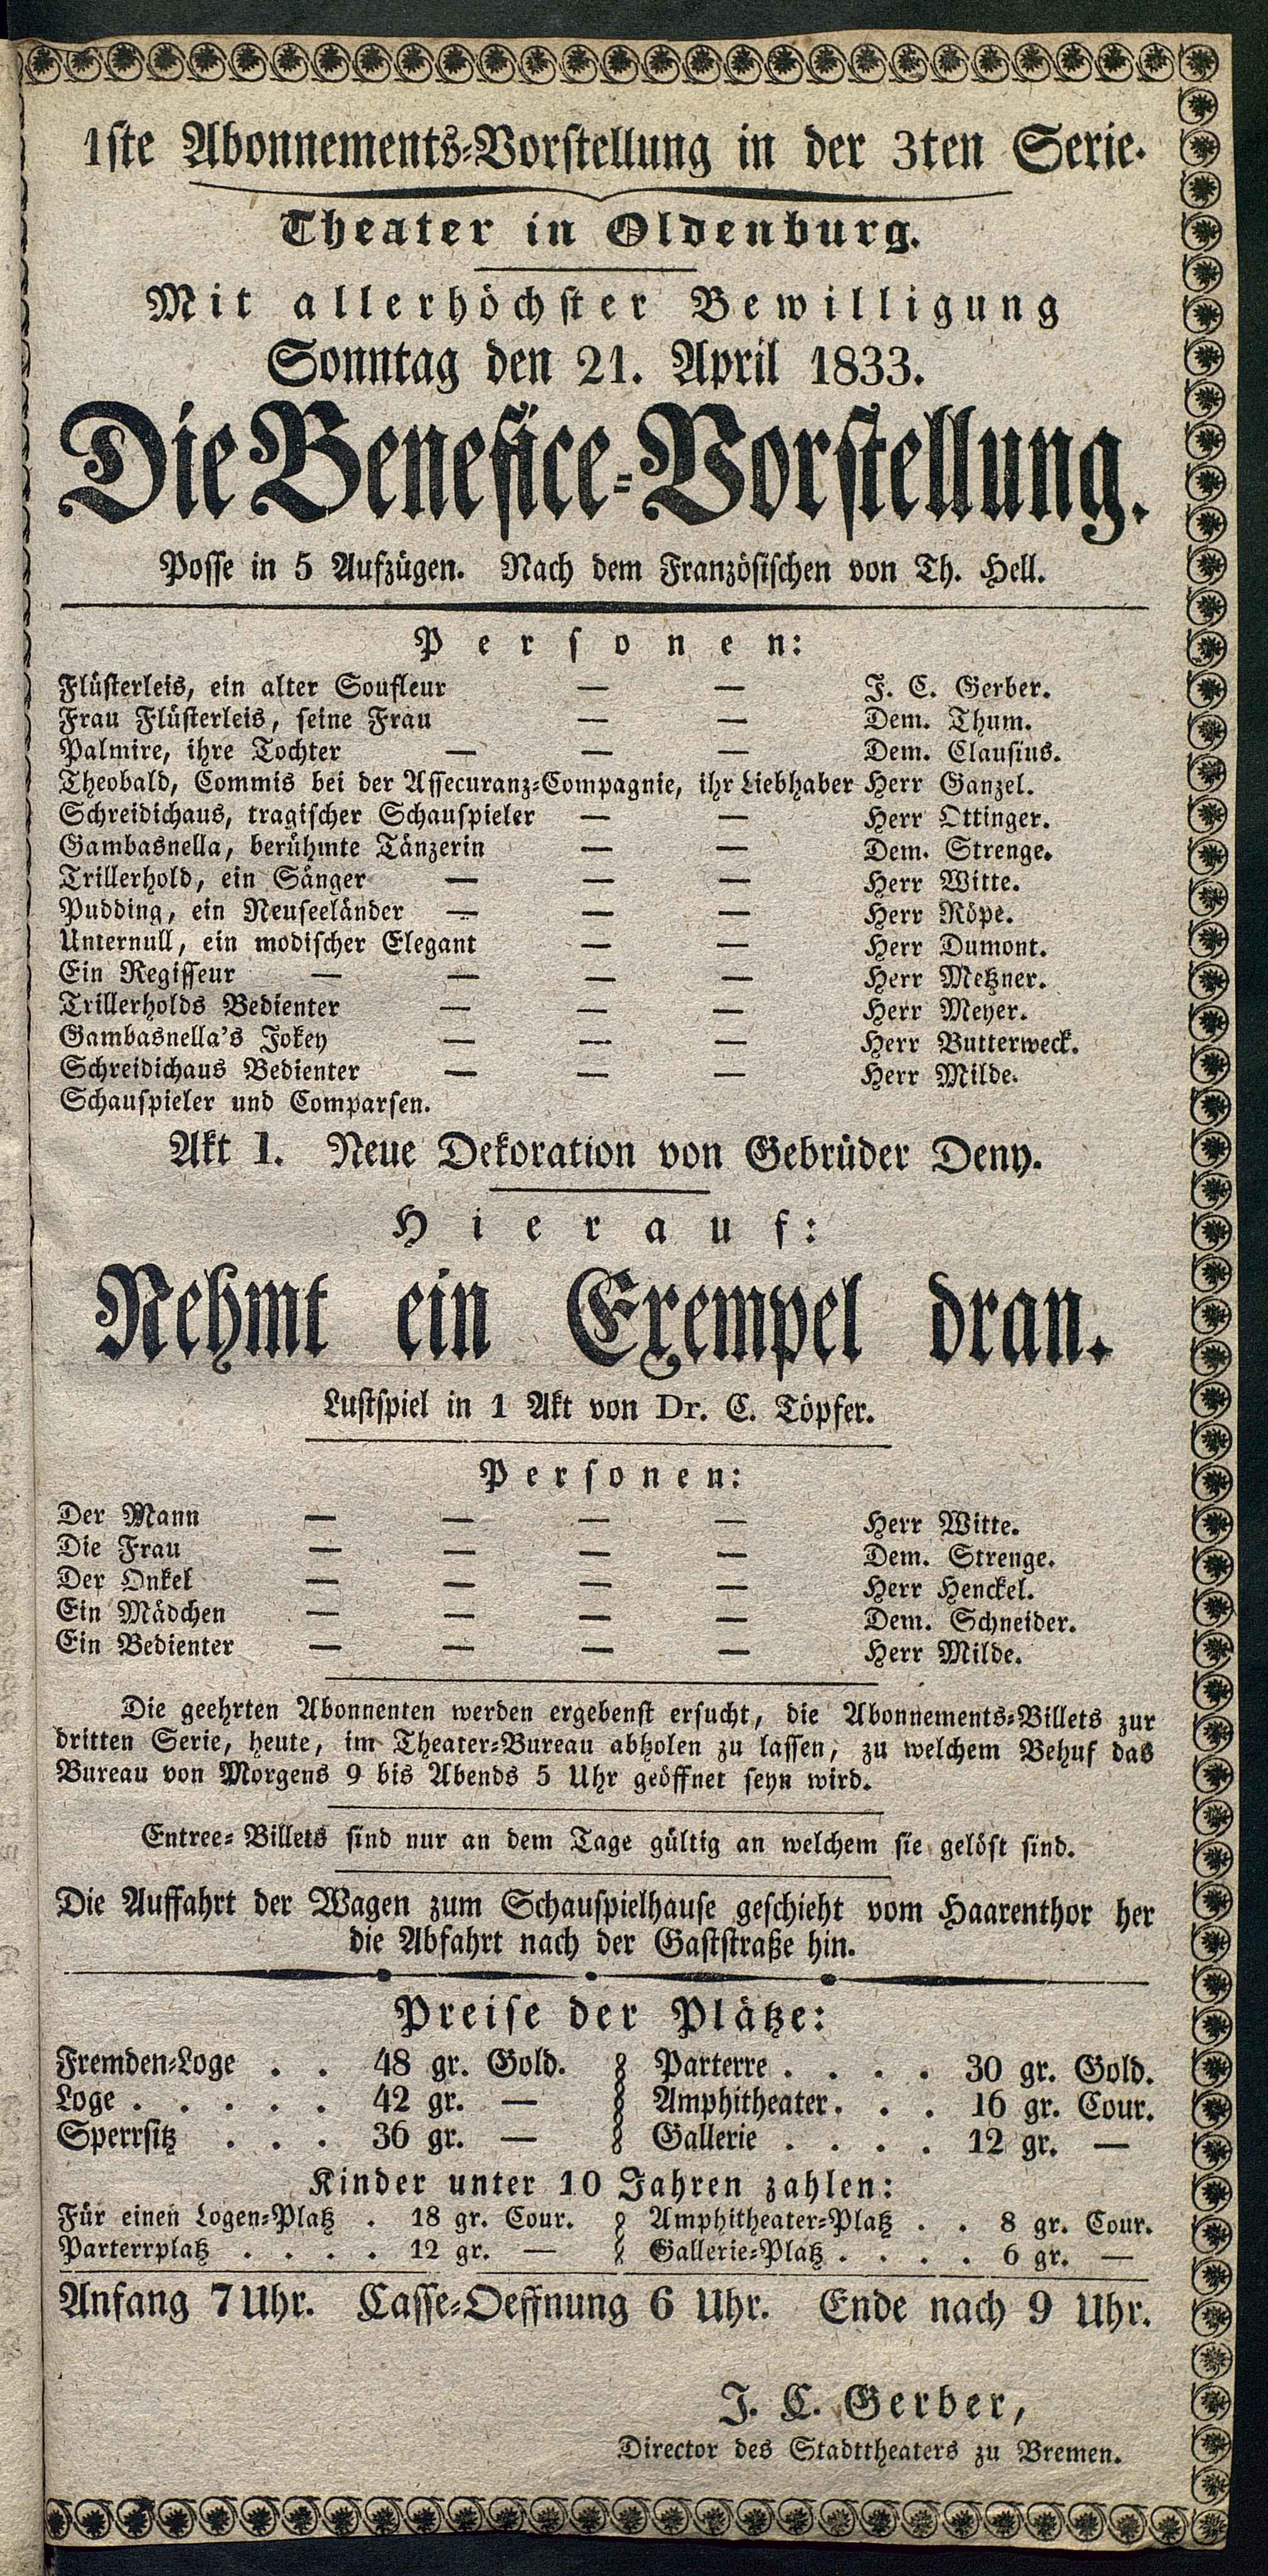 1ste Abonnements-Vorstellung in der 3ten Serie.
Theater in Oldenburg.
Mit allerhöchster Bewilligung
Sonntag den 21. April 1833.
Die Benefice-Vorstellung.
Posse in 5 Aufzügen. Nach dem Französischen von Th. Hell.
Personen:
Flüsterleis, ein alter Soufleur — — J. C. Gerber.
Frau Flüsterleis, seine Frau — — Dem. Thum.
Palmire, ihre Tochter — — — Dem. Clausius.
Theobald, Commis bei der Assecuranz-Compagnie, ihr Liebhaber Herr Ganzel.
Schreidichaus, tragischer Schauspieler — — Herr Ottinger.
Gambasnella, berühmte Tänzerin — — Dem. Strenge.
Trillerhold, ein Sänger — — — Herr Witte.
Pudding, ein Neuseeländer — — — Herr Röpe.
Unternull, ein modischer Elegant — — Herr Dumont.
Ein Regisseur — — — — Herr Metzner.
Trillerholds Bedienter — — — Herr Meyer.
Gambasnella's Jokey — — — Herr Butterweck.
Schreidichaus Bedienter — — — Herr Milde.
Schauspieler und Comparsen.
Akt 1. Neue Dekoration von Gebrüder Deny.
Hierauf:
Nehmt ein Exempel dran.
Lustspiel in 1 Akt von Dr. C. Töpfer.
Personen:
Der Mann — — — — Herr Witte.
Die Frau — — — — Dem. Strenge.
Der Onkel — — — — Herr Henckel.
Ein Mädchen — — — — Dem. Schneider.
Ein Bedienter — — — — Herr Milde.
Die geehrten Abonnenten werden ergebenst ersucht, die Abonnements-Billets zur
dritten Serie, heute, im Theater-Bureau abholen zu lassen, zu welchem Behuf das
Bureau von Morgens 9 bis Abends 5 Uhr geöffnet seyn wird.
Entree-Billets sind nur an dem Tage gültig an welchem sie gelöst sind.
Die Auffahrt der Wagen zum Schauspielhause geschieht vom Haarenthor her
die Abfahrt nach der Gaststraße hin.
Preise der Plätze:
Fremden-Loge . . 48 gr. Gold. Parterre . . . . 30 gr. Gold.
Loge . . . . . 42 gr. — Amphitheater . . . 16 gr. Cour.
Sperrsitz . . . 36 gr. — Gallerie . . . . 12 gr. —
Kinder unter 10 Jahren zahlen:
Für einen Logen-Platz . 18 gr. Cour. Amphitheater-Platz . . 8 gr. Cour.
Parterrplatz . . . . 12 gr. — Gallerie-Platz . . . . 6 gr. —
Anfang 7 Uhr. Casse-Oeffnung 6 Uhr. Ende nach 9 Uhr.
J. C. Gerber,
Director des Stadttheaters zu Bremen.